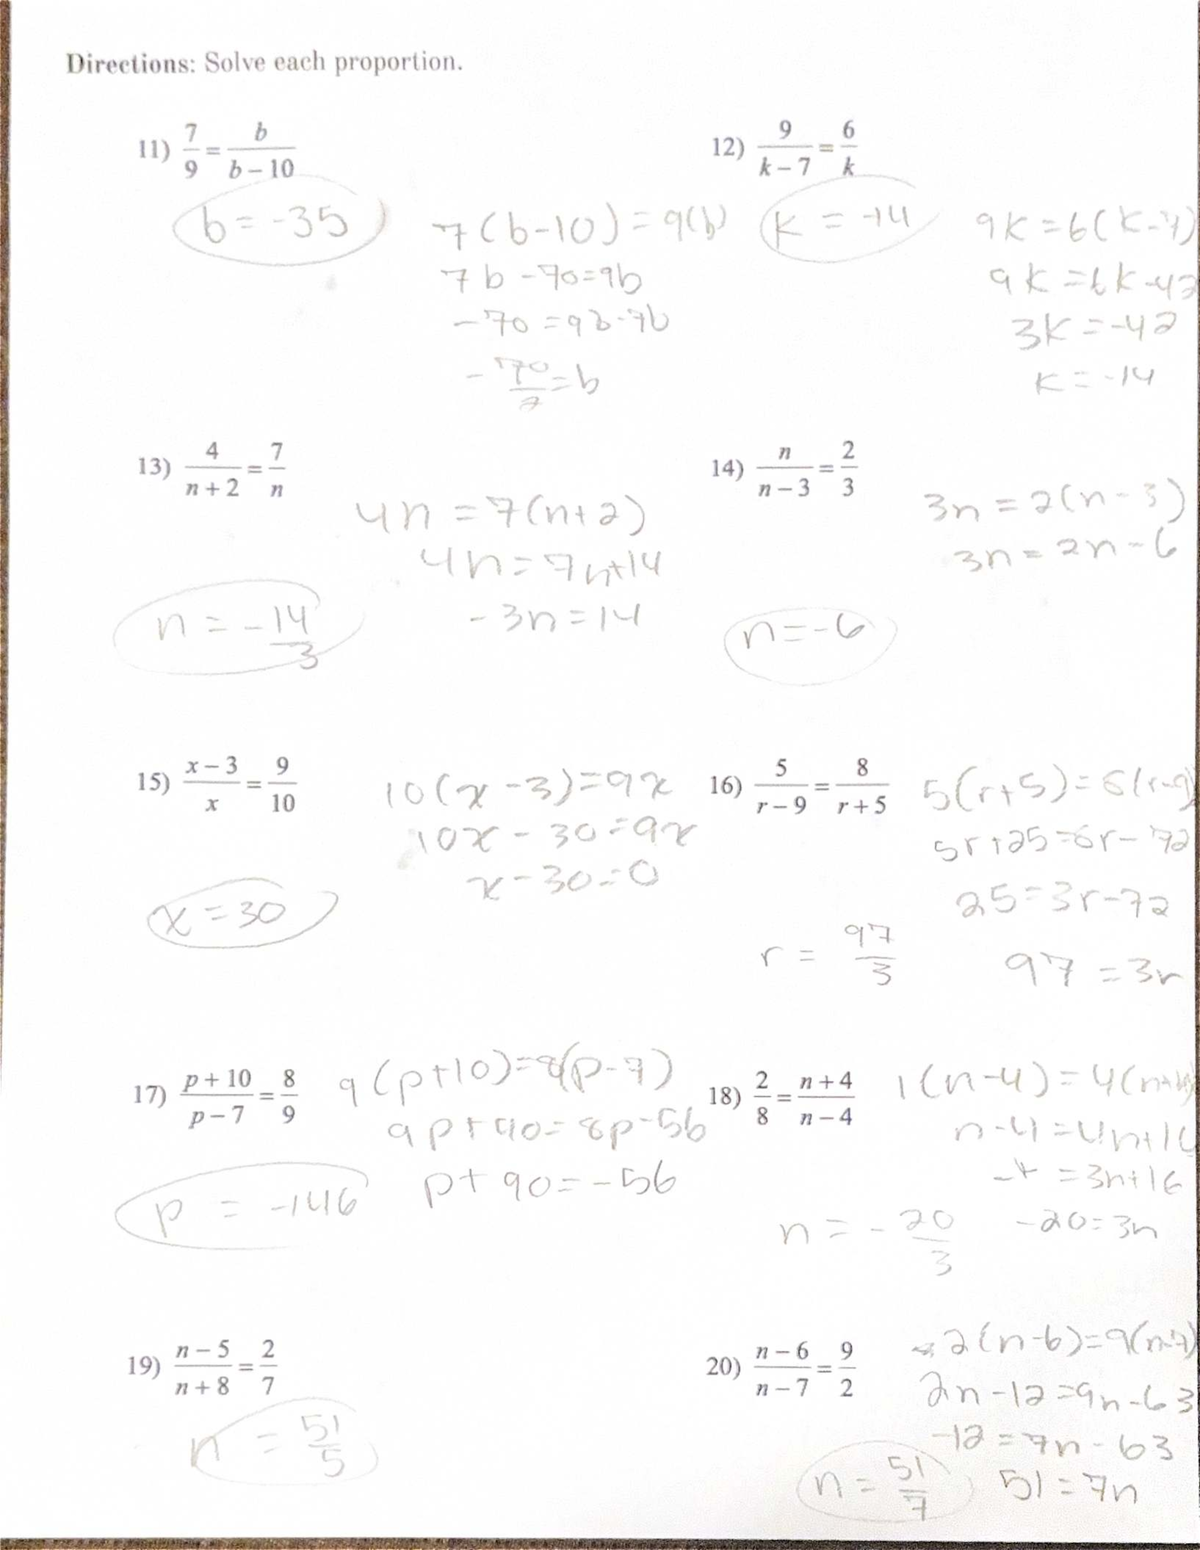 Directions: Solve each proportion.
11) 7/9 = b/(b – 10)
b = -35
7(b-10) = 9(b)
7b -70=9b
-70 =9b-7b
-70/2 =b
12) 9/(k – 7) = 6/k
k = -14
9k =6(k-7)
9k =6k-42
3k =-42
k = -14
13) 4/(n + 2) = 7/n
4n = 7(n+2)
4n= 7n+14
-3n=14
n = -14/3
14) n/(n – 3) = 2/3
3n = 2(n-3)
3n = 2n-6
n=-6
15) (x – 3)/x = 9/10
10(x-3)=9x
10x - 30=9x
x-30=0
x = 30
16) 5/(r – 9) = 8/(r + 5)
5(r+5)=8(r-9)
5r+25=8r-72
25=3r-72
97 = 3r
r = 97/3
17) (p + 10)/(p – 7) = 8/9
9(p+10)=8(p-7)
9p+90=8p-56
p+90=-56
p = -146
18) 2/8 = (n + 4)/(n – 4)
1(n-4)=4(n+4)
n-4=4n+16
-4 = 3n+16
-20=3n
n = -20/3
19) (n – 5)/(n + 8) = 2/7
n = 51/5
20) (n – 6)/(n – 7) = 9/2
2(n-6)=9(n-7)
2n-12=9n-63
-12=7n-63
51=7n
n = 51/7